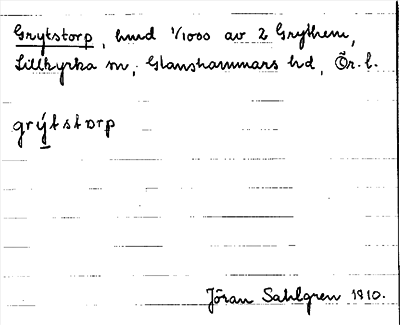 Grytstorp, hmd 1/1000 av 2 Grythem,
Lillkyrka sn, Glanshammars hd, Ör. l.
grýtstɒrp
Jöran Sahlgren 1910.